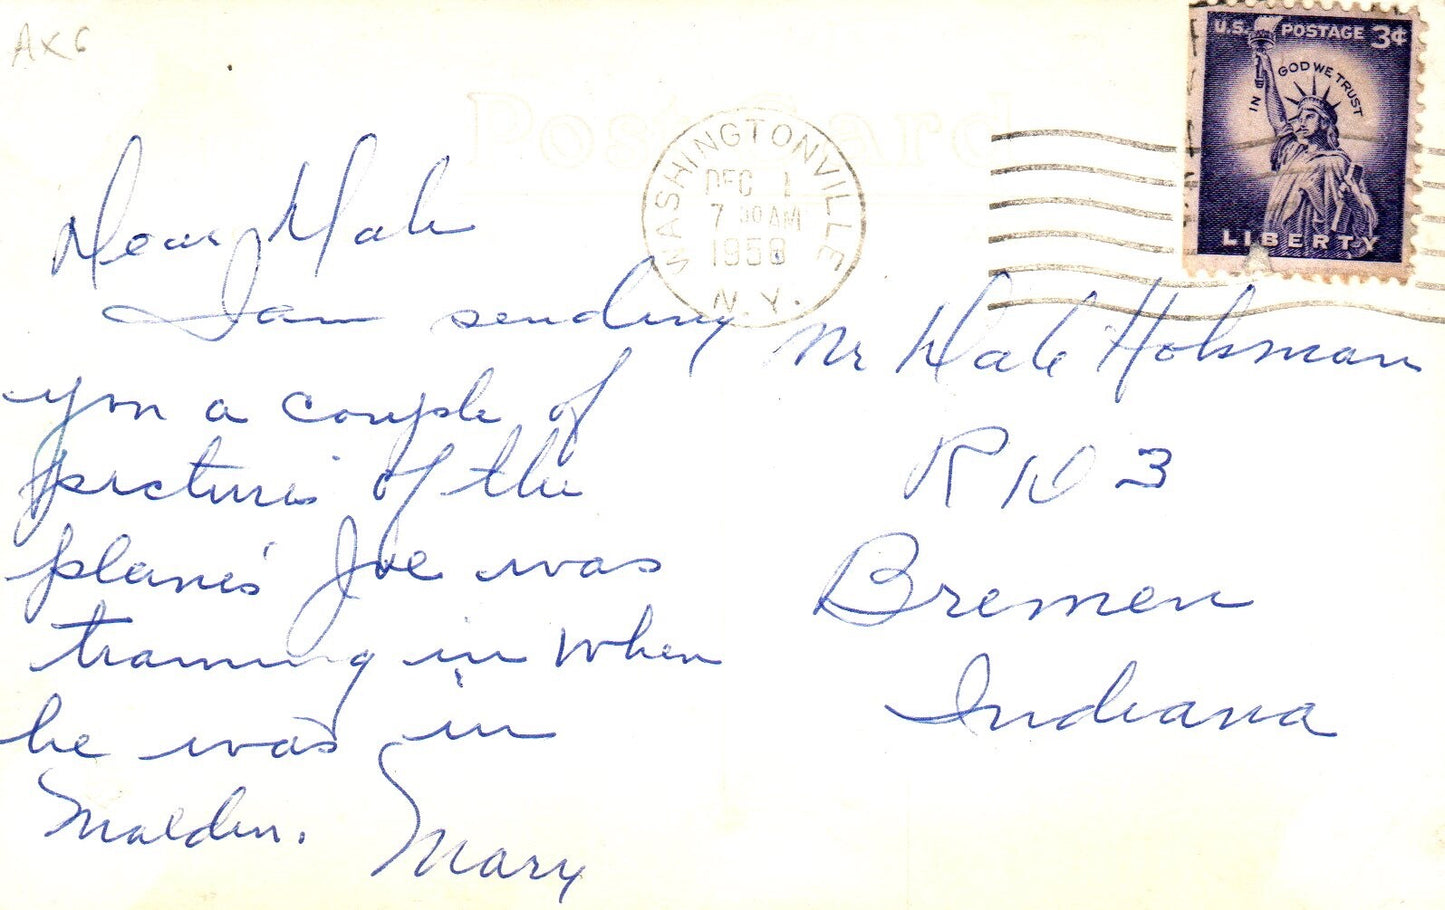 AX6
Post Card
U.S. POSTAGE 3¢
IN GOD WE TRUST
LIBERTY
WASHINGTONVILLE
DEC 1
7 30 AM
1958
N.Y.
Dear Dale
I am sending
you a couple of
pictures of the
planes Joe was
training in when
he was in
Malden.
Mary
Mr Dale Holsman
R
3
Bremen
Indiana